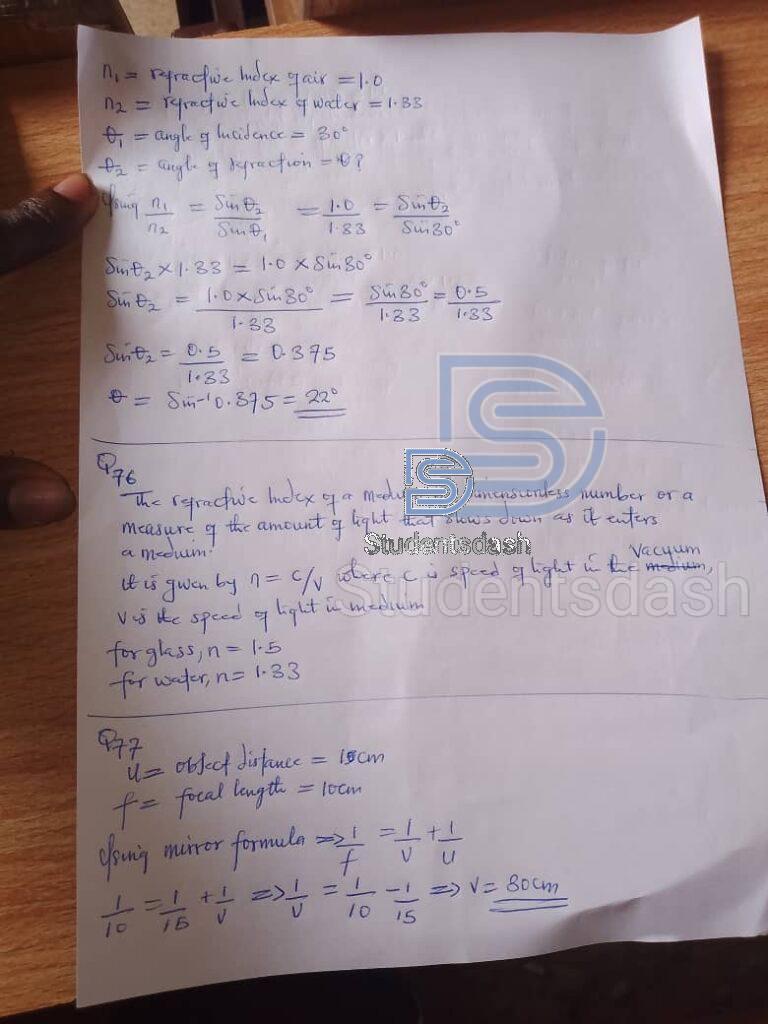 n₁ = refractive Index of air = 1.0
n₂ = refractive Index of water = 1.33
θ₁ = angle of Incidence = 30°
θ₂ = angle of refraction = θ?
Using n₁/n₂ = Sinθ₂/Sinθ₁ = 1.0/1.33 = Sinθ₂/Sin30°
Sinθ₂ × 1.33 = 1.0 × Sin30°
Sinθ₂ = 1.0×Sin30°/1.33 = Sin30°/1.33 = 0.5/1.33
Sinθ₂ = 0.5/1.33 = 0.375
θ = Sin⁻¹0.375 = 22°
Q76
The refractive Index of a dimensionless number or a
measure of the amount of light that slows down as it enters
a medium.
Studentsdash
it is given by n = c/v where c is speed of light in the medium, Vacyum
Studentsdash
v is the speed of light in medium
for glass, n = 1.5
for water, n = 1.33
Q77
u = object distance = 15cm
f = focal length = 10cm
Using mirror formula => 1/f = 1/v + 1/u
1/10 = 1/15 + 1/v => 1/v = 1/10 - 1/15 => v = 30cm